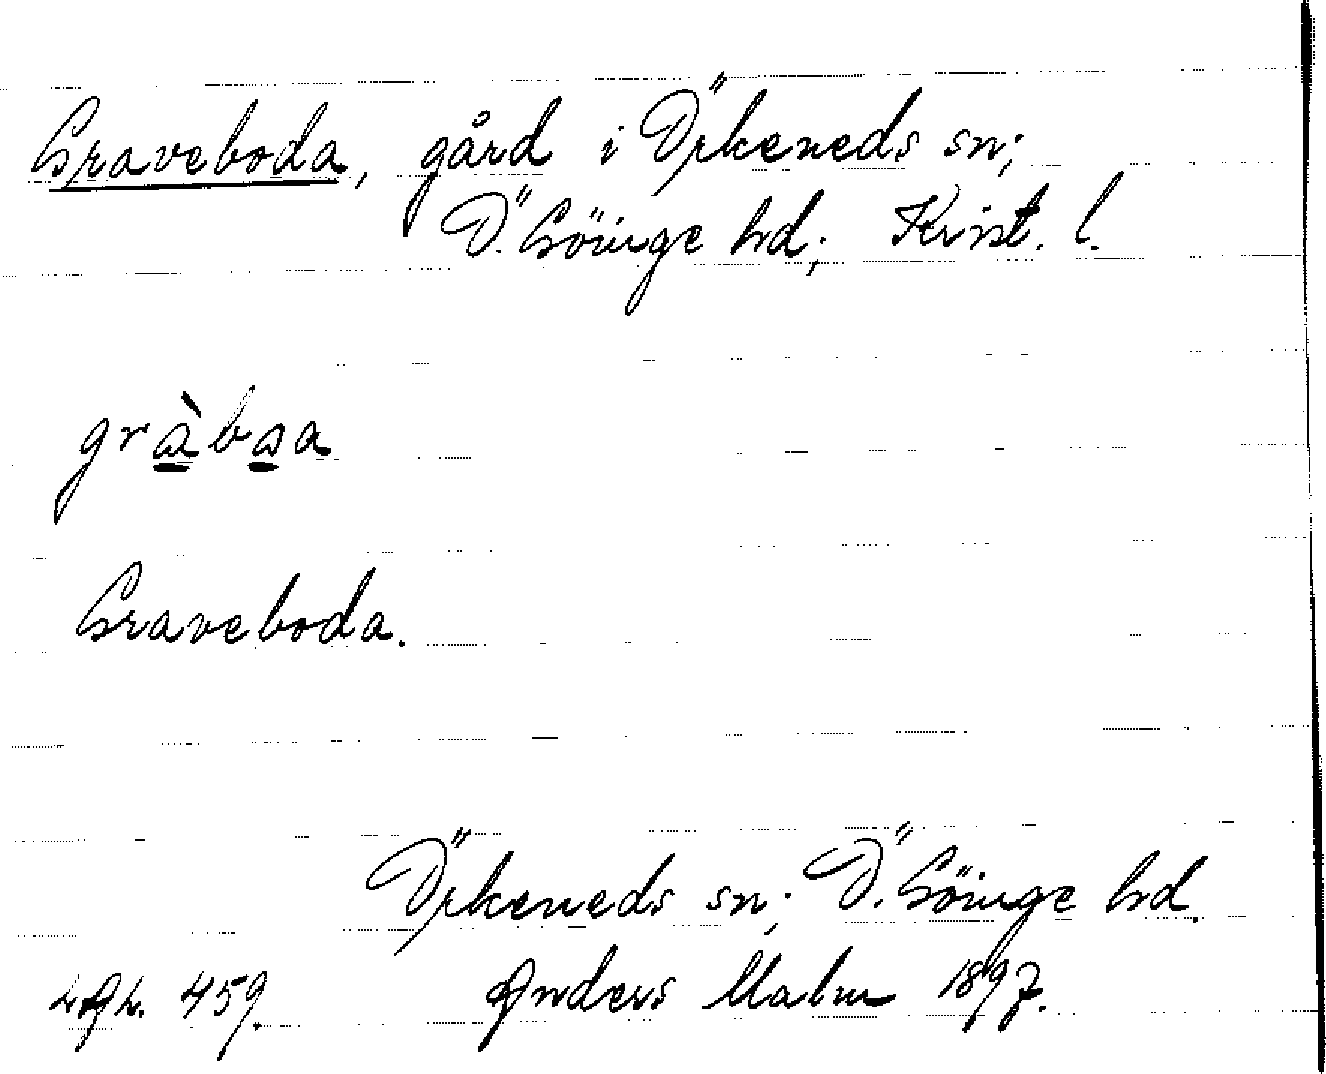 Graveboda, gård i Örkeneds sn;
Ö. Göinge hd; Krist. l.
gràbaa
Graveboda.
Örkeneds sn; Ö. Göinge hd.
459. Anders Malm 1897.